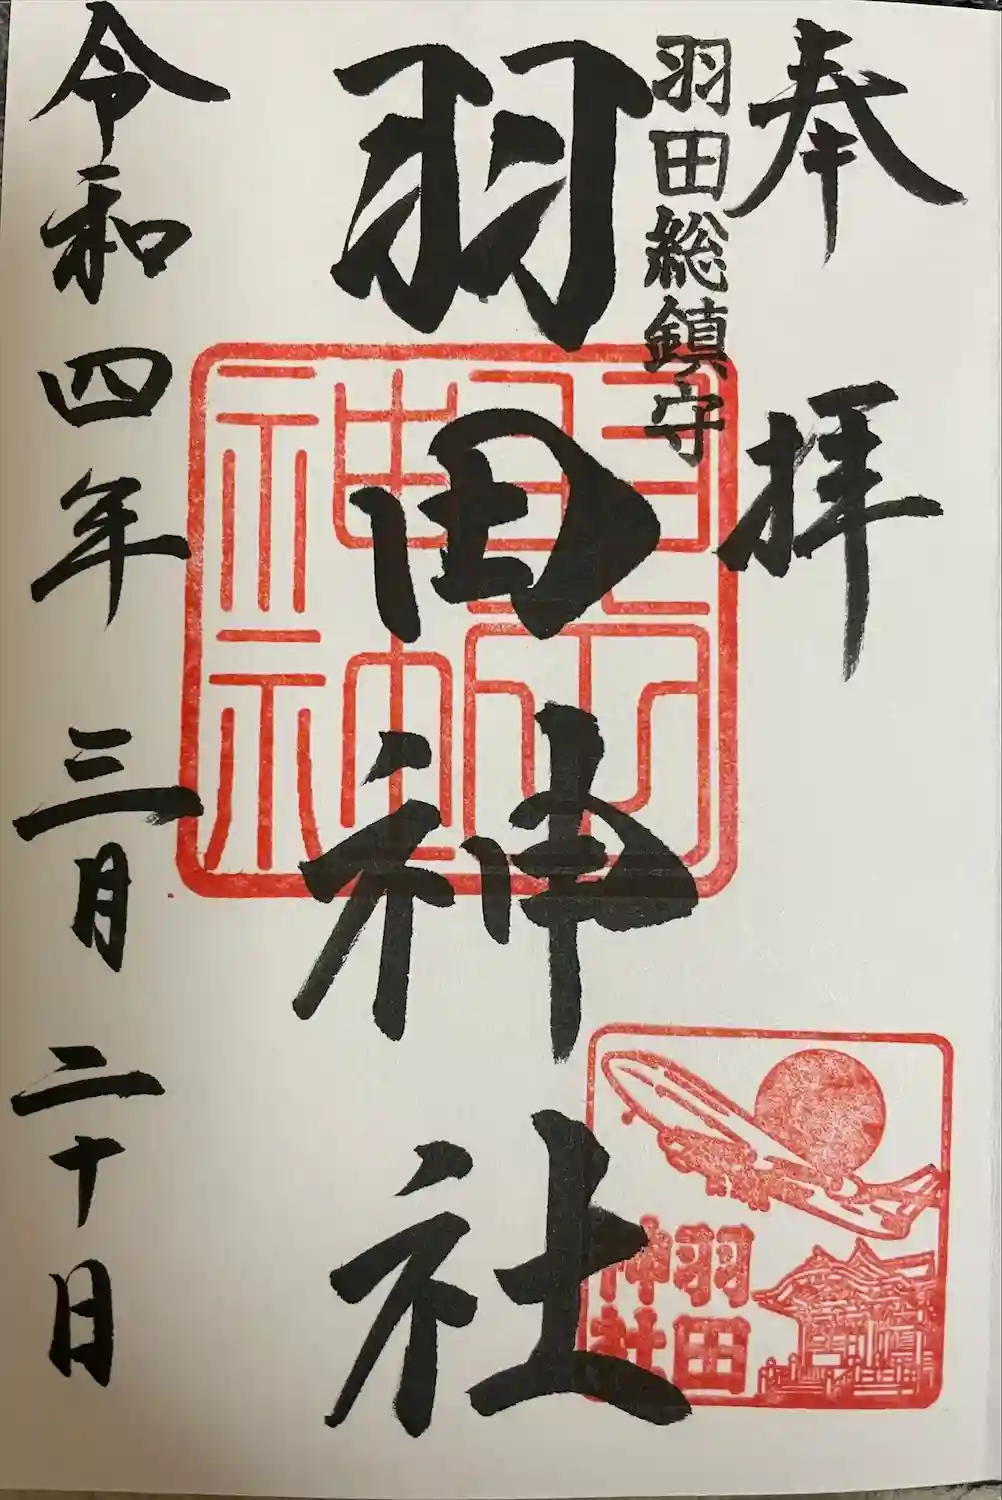 奉拝
羽田総鎮守
羽田神社
令和四年三月二十日
羽田
神社